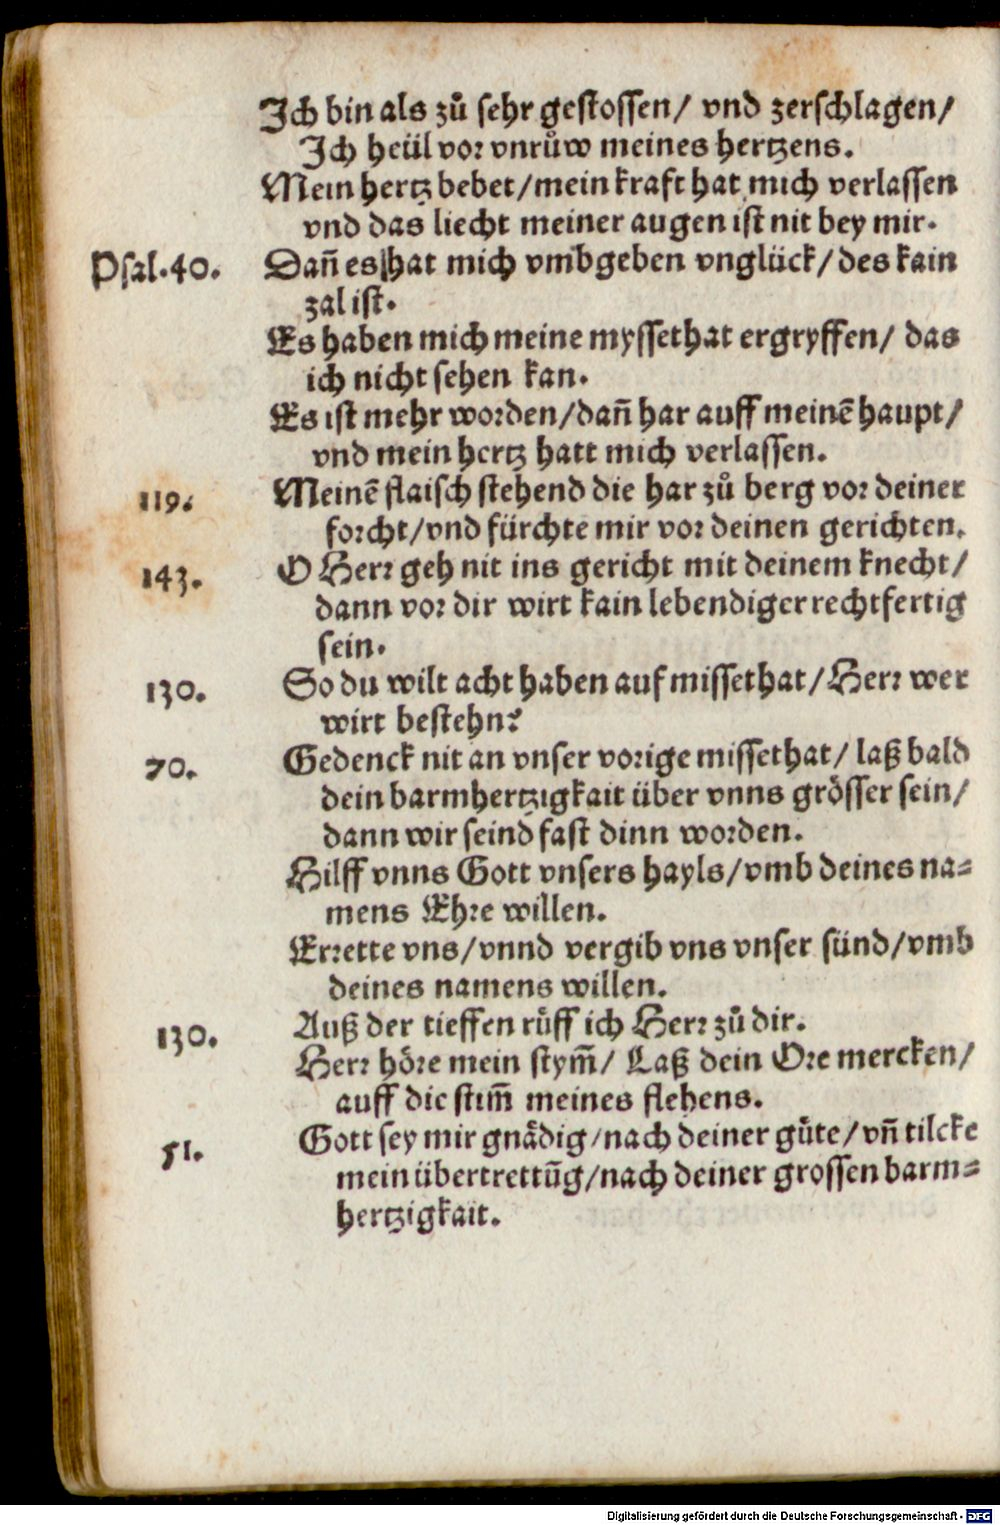 Ich bin als zuͦ sehr gestossen/ vnd zerschlagen/
Ich heül vor vnruͦw meines hertzens.
Mein hertz bebet/mein kraft hat mich verlassen
vnd das liecht meiner augen ist nit bey mir.
Psal.40. Dañ es hat mich vmbgeben vnglück/des kain
zal ist.
Es haben mich meine myssethat ergryffen/ das
ich nicht sehen kan.
Es ist mehr worden/dañ har auff meinē haupt/
vnd mein hertz hatt mich verlassen.
119. Meinē flaisch stehend die har zuͦ berg vor deiner
forcht/vnd fürchte mir vor deinen gerichten.
143. O Herr geh nit ins gericht mit deinem knecht/
dann vor dir wirt kain lebendiger rechtfertig
sein.
130. So du wilt acht haben auf missethat/Herr wer
wirt bestehn?
70. Gedenck nit an vnser vorige missethat/ laß bald
dein barmhertzigkait über vnns grösser sein/
dann wir seind fast dinn worden.
Hilff vnns Gott vnsers hayls/vmb deines na⸗
mens Ehre willen.
Errette vns/vnnd vergib vns vnser sünd/vmb
deines namens willen.
130. Auß der tieffen ruͤff ich Herr zuͦ dir.
Herr höre mein stym̃/ Laß dein Ore mercken/
auff die stim̃ meines flehens.
51. Gott sey mir gnädig/nach deiner guͤte/vñ tilcke
mein übertrettũg/nach deiner grossen barm⸗
hertzigkait.
Digitalisierung gefördert durch die Deutsche Forschungsgemeinschaft - DFG